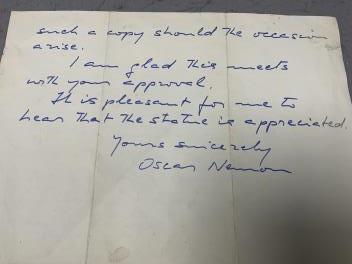 such a copy should the occasion
arise.
I am glad this meets
with your approval.
It is pleasant for me to
hear that the statue is appreciated.
Yours sincerely
Oscar Nemon